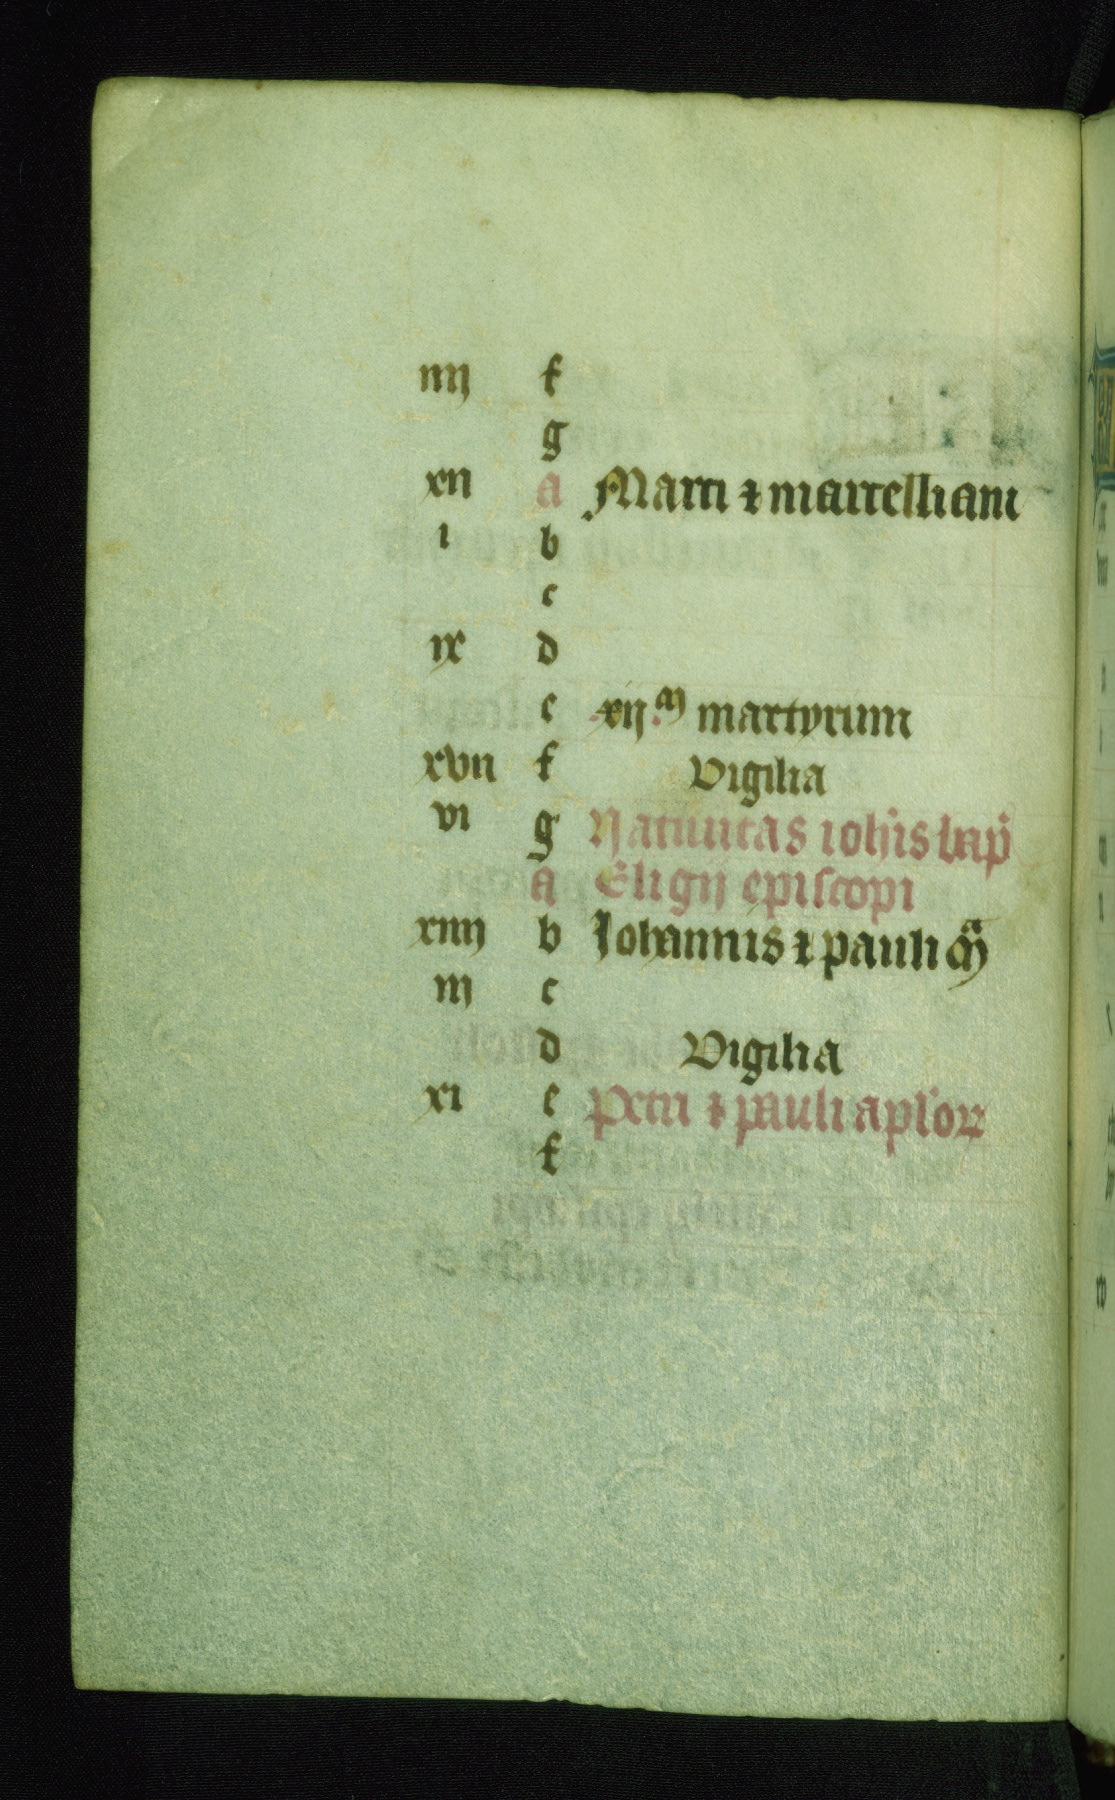 iiij f
g
xii A Marci ⁊ marcelliani
i b
c
ix d
e xij.m martyrum
xvii f Vigilia
vi g Natiuitas ioh̄is bap̄
A Eligij episcopi
xiiij b Johannis ⁊ pauli m̄
iij c
d Vigilia
xi e Petri ⁊ pauli apl'oꝝ
f